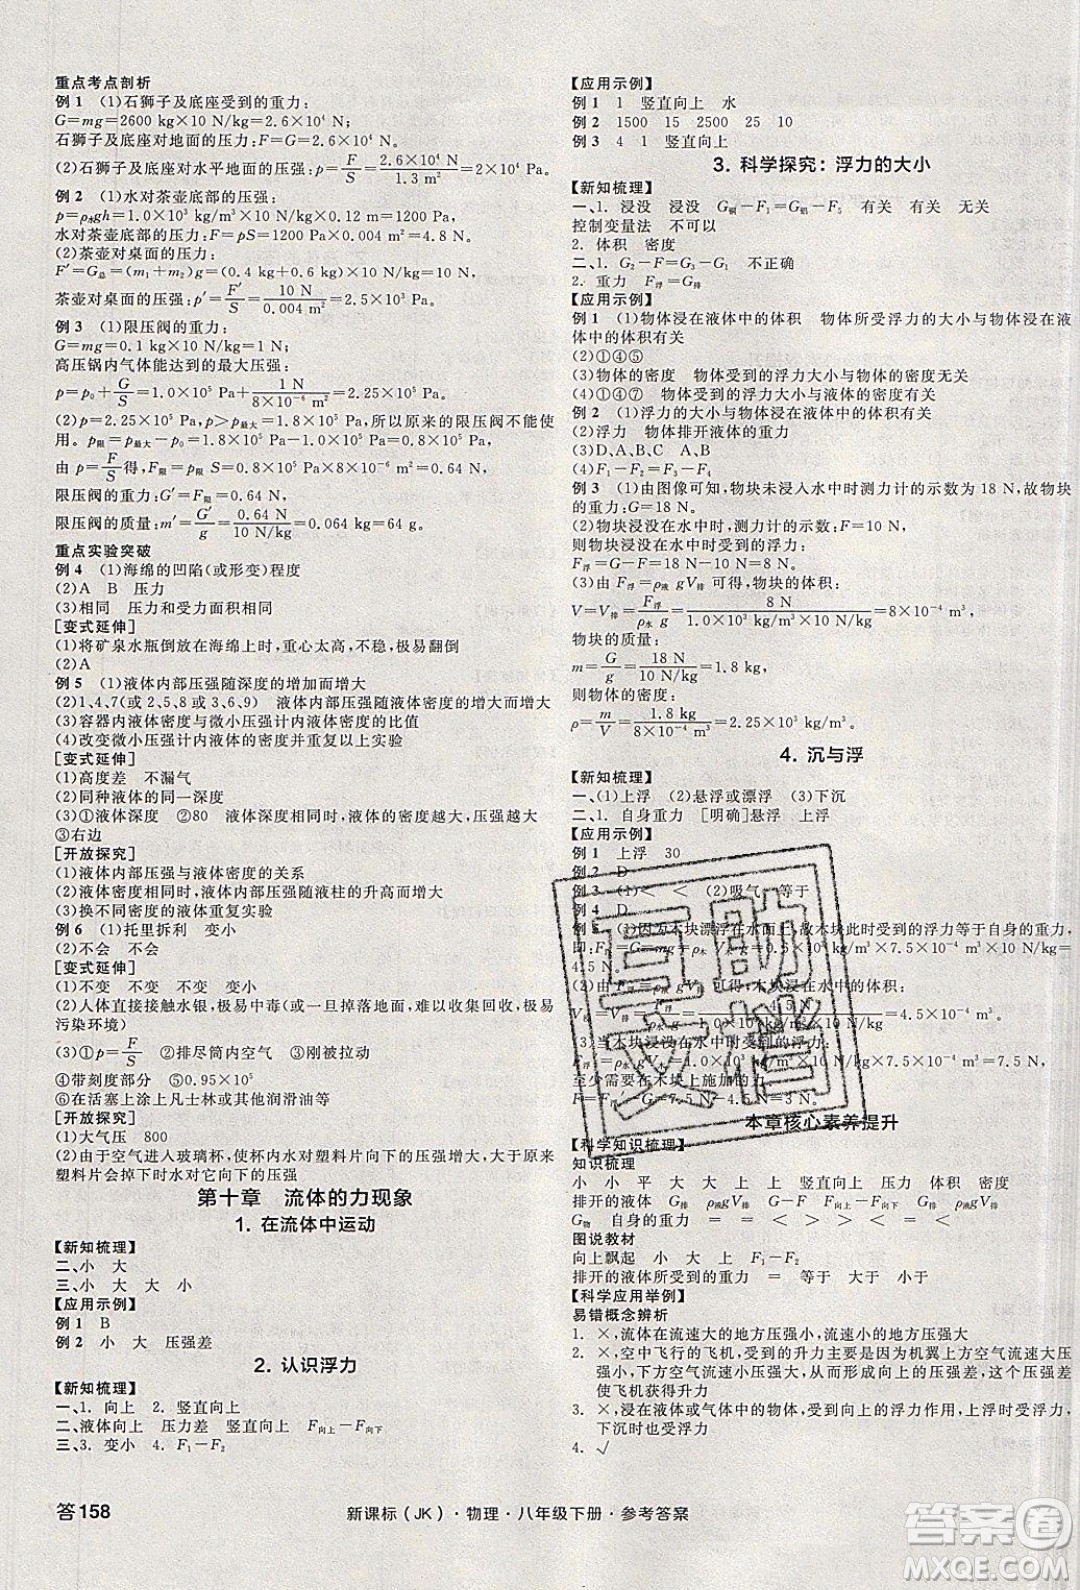 重点考点剖析
例 1　(1)石狮子及底座受到的重力:
G=mg=2600 kg×10 N/kg=2.6×10⁴ N;
石狮子及底座对地面的压力:F=G=2.6×10⁴ N;
(2)石狮子及底座对水平地面的压强:p=F/S=2.6×10⁴ N/1.3 m²=2×10⁴ Pa
例 2　(1)水对茶壶底部的压强:
p=ρ水gh=1.0×10³ kg/m³×10 N/kg×0.12 m=1200 Pa;
水对茶壶底部的压力:F=pS=1200 Pa×0.004 m²=4.8 N;
(2)茶壶对桌面的压力:
F′=G总=(m₁+m₂)g=(0.4 kg+0.6 kg)×10 N/kg=10 N,
茶壶对桌面的压强:p′=F′/S=10 N/0.004 m²=2.5×10³ Pa
例 3　(1)限压阀的重力:
G=mg=0.1 kg×10 N/kg=1 N;
高压锅内气体能达到的最大压强:
p=p₀+G/S=1.0×10⁵ Pa+1 N/8×10⁻⁶ m²=2.25×10⁵ Pa;
(2)p=2.25×10⁵ Pa>p最大=1.8×10⁵ Pa,所以原来的限压阀不能使
用。p限=p最大-p₀=1.8×10⁵ Pa-1.0×10⁵ Pa=0.8×10⁵ Pa,
由 p=F/S得,F限=p限 S=0.8×10⁵ Pa×8×10⁻⁶ m²=0.64 N,
限压阀的重力:G′=F限=0.64 N,
限压阀的质量:m′=G′/g=0.64 N/10 N/kg=0.064 kg=64 g
重点实验突破
例 4　(1)海绵的凹陷(或形变)程度
(2)A　B　压力
(3)相同　压力和受力面积相同
[变式延伸]
(1)将矿泉水瓶倒放在海绵上时,重心太高,不稳,容易倒
(2)A
例 5　(1)液体内部压强随深度的增加而增大
(2)1、4、7(或 2、5、8 或 3、6、9)　液体内部压强随液体密度的增大而增大
(3)容器内液体密度与微小压强计内液体密度的比值
(4)改变微小压强计内液体的密度并重复以上实验
[变式延伸]
(1)高度差　不漏气
(2)同种液体的同一深度
(3)①液体深度　②80　液体深度相同时,液体密度越大,压强越大
③右边
[开放探究]
(1)液体内部压强与液体密度的关系
(2)液体密度相同时,液体内部压强随液柱的升高而增大
(3)换不同密度的液体重复实验
例 6　(1)托里拆利　变小
(2)不会　不会
[变式延伸]
(1)不变　不变　不变　变小
(2)人体直接接触水银,极易中毒(或一旦掉落,难以收集回收,极易
污染环境)
(3)①p=F/S　②排尽筒内空气　③刚被拉动
④带刻度部分　⑤0.95×10⁵
⑥在活塞上涂上凡士林或其他润滑油等
[开放探究]
(1)大气压　800
(2)由于空气进入玻璃杯,使杯内水对塑料片向下的压强增大,所以
塑料片会掉下时水对它向下的压强
第十章　流体的力现象
1. 在流体中运动
【新知梳理】
二、小　大
三、小　大　大　小
【应用示例】
例 1　B
例 2　小　大　压强差
2. 认识浮力
【新知梳理】
一、1. 向上　2. 竖直向上
二、液体向上　压力差　竖直向上　F向上-F向下
三、3. 变小　4. F₁-F₂
【应用示例】
例 1　1　竖直向上　水
例 2　1500　15　2500　25　10
例 3　4　1　竖直向上
3. 科学探究：浮力的大小
【新知梳理】
一、1. 浸没　浸没　G铜-F₁=G铝-F₅　有关　有关　无关
控制变量法　不可以
2. 体积　密度
二、1. G₂-F=G₃-G₁　不正确
2. 重力　F浮=G排
【应用示例】
例 1　(1)物体浸在液体中的体积　物体所受浮力的大小与物体浸在液
体中的体积有关
(2)①④⑤
(3)物体的密度　物体受到的浮力大小与物体的密度无关
(4)①④⑦　物体受到的浮力大小与液体的密度有关
例 2　(1)浮力的大小与物体浸在液体中的体积有关
(2)浮力　物体排开液体的重力
(3)D、A、B、C　A、B
(4)F₁-F₂=F₃-F₄
例 3　(1)由图像可知,物块未浸入水中时测力计的示数为 18 N,故物块
的重力:G=18 N;
(2)物块浸没在水中时,测力计的示数:F=10 N,
则物块浸没在水中时受到的浮力:
F浮=G-F=18 N-10 N=8 N;
(3)由 F浮=ρ液 gV排 可得,物块的体积:
V=V排=F浮/ρ水 g=8 N/1.0×10³ kg/m³×10 N/kg=8×10⁻⁴ m³,
物块的质量:
m=G/g=18 N/10 N/kg=1.8 kg,
则物体的密度:
ρ=m/V=1.8 kg/8×10⁻⁴ m³=2.25×10³ kg/m³
4. 沉与浮
【新知梳理】
一、(1)上浮　(2)悬浮或漂浮　(3)下沉
二、1. 自身重力　[明确]悬浮　上浮
【应用示例】
例 1　上浮　30
例 2　D
例 3　(1)<　<　(2)吸气　等于
例 4　D
例 5　(1)因为木块漂浮在水面上,故木块受到的浮力等于自身的重力,
互助文档
本章核心素养提升
【科学知识梳理】
知识梳理
小　小　平　大　大　上　上　小　上　竖直向上
排开的液体　G排　ρ液gV排　G-F　F向上-F向下　G排　ρ液gV排
G物　自身的重力　=　=　=　<　>　>　=　<
图说教材
向上飘起　小　大　上　F₁-F₂
排开的液体所受到的重力　=　等于　大于　小于
【科学应用举例】
易错概念辨析
1. ×,流体在流速大的地方压强小,流速小的地方压强大
2. ×,空中飞行的飞机,受到的升力主要是因为机翼上方空气流速大压
强小,下方空气流速小压强大,所以就会形成向上的压强差,这一压强差
使飞机获得升力
3. ×,浸在液体或气体中的物体,都受到向上的浮力作用,上浮时受浮力,
下沉时也受浮力
4. √
答158
新课标（JK）·物理·八年级下册·参考答案
答案圈
MXQE.COM